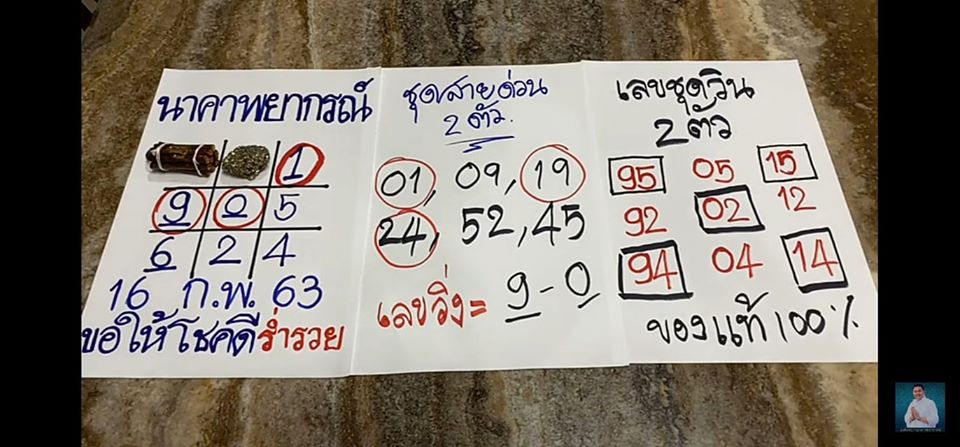 นาคาพยากรณ์
1
9 0 5
6 2 4
16 ก.พ. 63
ขอให้โชคดีร่ำรวย
ชุดสายด่วน
2 ตัว.
01, 09, 19
24, 52, 45
เลขวิ่ง = 9 - 0
เลขชุดวิน
2 ตัว
95 05 15
92 02 12
94 04 14
ของแท้ 100%